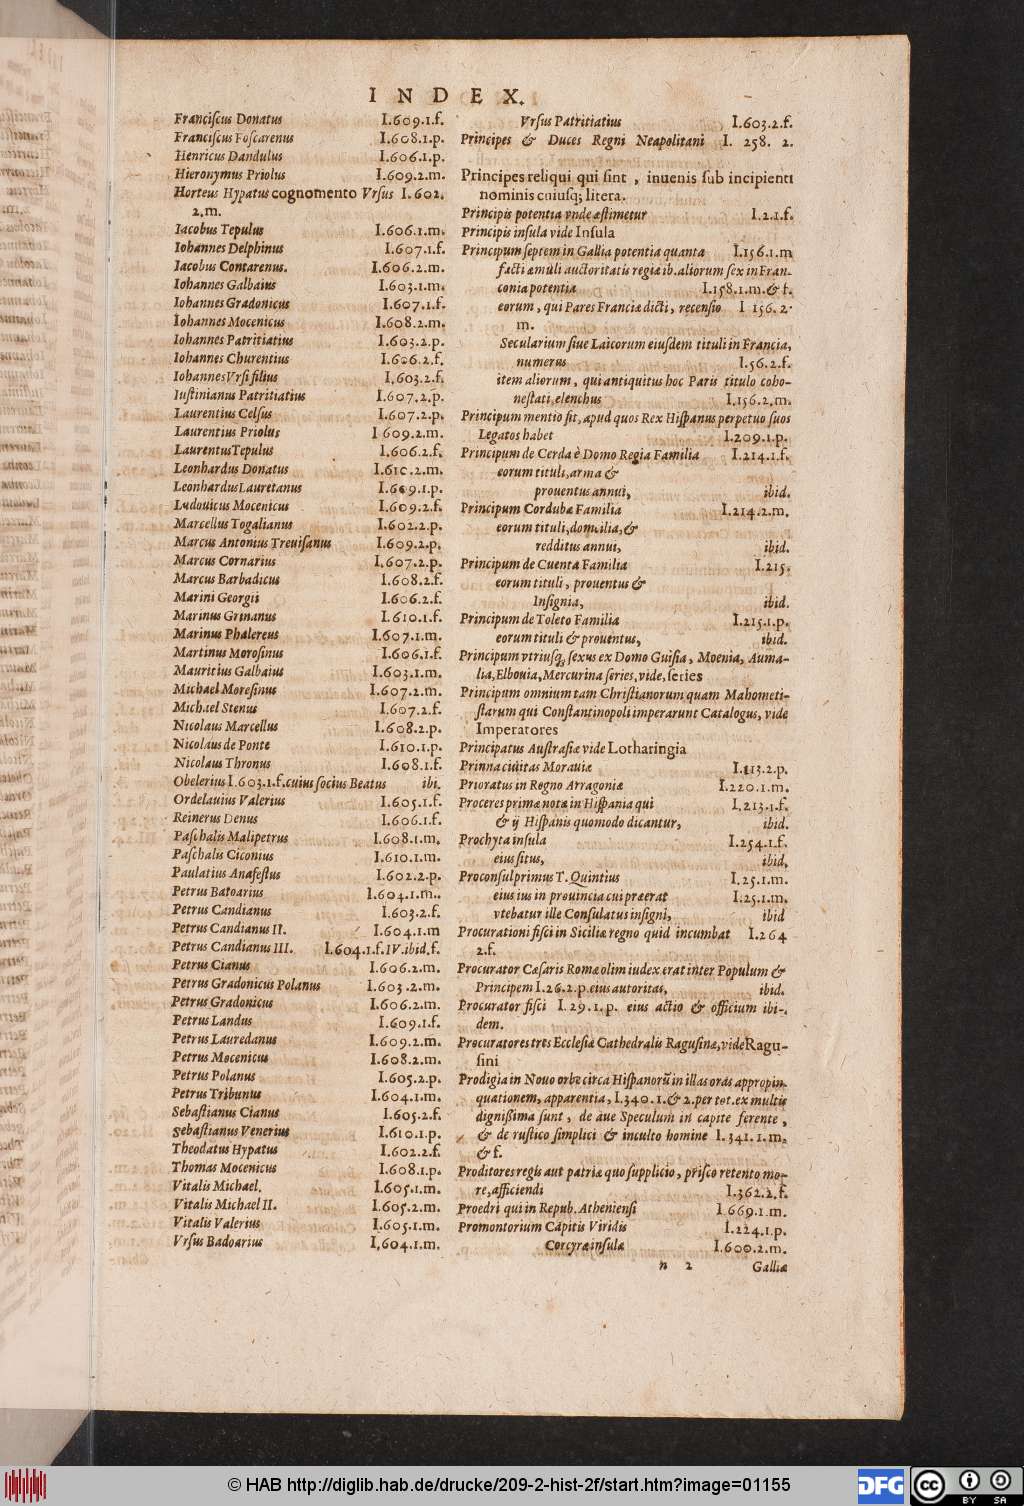 INDEX.
Franciſcus Donatus I.609.1.f.
Franciſcus Foſcarenus I.608.1.p.
Henricus Dandulus I.606.1.p.
Hieronymus Priolus I.609.2.m.
Horteus Hypatus cognomento Vrſus I.602.
2.m.
Iacobus Tepulus I.606.1.m.
Iohannes Delphinus I.607.1.f.
Iacobus Contarenus. I.606.2.m.
Iohannes Galbaius I.603.1.m.
Iohannes Gradonicus I.607.1.f.
Iohannes Mocenicus I.608.2.m.
Iohannes Patritiatius I.603.2.p.
Iohannes Churentius I.606.2.f.
Iohannes Vrſi filius I.603.2.f.
Iuſtinianus Patritiatius I.607.2.p.
Laurentius Celſus I.607.2.p.
Laurentius Priolus I 609.2.m.
Laurentus Tepulus I.606.2.f.
Leonhardus Donatus I.610.2.m.
Leonhardus Lauretanus I.609.1.p.
Ludouicus Mocenicus I.609.2.f.
Marcellus Togalianus I.602.2.p.
Marcus Antonius Treuiſanus I.609.2.p.
Marcus Cornarius I.607.2.p.
Marcus Barbadicus I.608.2.f.
Marini Georgii I.606.2.f.
Marinus Grinanus I.610.1.f.
Marinus Phalereus I.607.1.m.
Martinus Moroſinus I.606.1.f.
Mauritius Galbaius I.603.1.m.
Michael Moreſinus I.607.2.m.
Michael Stenus I.607.2.f.
Nicolaus Marcellus I.608.2.p.
Nicolaus de Ponte I.610.1.p.
Nicolaus Thronus I.608.1.f.
Obelerius I.603.1.f.cuius ſocius Beatus ibi.
Ordelauius Valerius I.605.1.f.
Reinerus Denus I.606.1.f.
Paſchalis Malipetrus I.608.1.m.
Paſchalis Ciconius I.610.1.m.
Paulatius Anafeſtus I.602.2.p.
Petrus Batoarius I.604.1.m..
Petrus Candianus I.603.2.f.
Petrus Candianus II. I.604.1.m
Petrus Candianus III. I.604.1.f.IV.ibid.f.
Petrus Cianus I.606.2.m.
Petrus Gradonicus Polanus I.603.2.m.
Petrus Gradonicus I.606.2.m.
Petrus Landus I.609.1.f.
Petrus Lauredanus I.609.2.m.
Petrus Mocenicus I.608.2.m.
Petrus Polanus I.605.2.p.
Petrus Tribunus I.604.1.m.
Sebaſtianus Cianus I.605.2.f.
Sebaſtianus Venerius I.610.1.p.
Theodatus Hypatus I.602.2.f.
Thomas Mocenicus I.608.1.p.
Vitalis Michael. I.605.1.m.
Vitalis Michael II. I.605.2.m.
Vitalis Valerius I.605.1.m.
Vrſus Badoarius I.604.1.m.
Vrſus Patritiatius I.603.2.f.
Principes & Duces Regni Neapolitani I. 258. 2.
Principes reliqui qui ſint , inuenis ſub incipienti
nominis cuiuſq; litera.
Principis potentia vnde æſtimetur I.2.1.f.
Principis inſula vide Inſula
Principum ſeptem in Gallia potentia quanta I.156.1.m
facti æmuli auctoritatis regiæ ib. aliorum ſex in Fran-
conia potentia I.158.1.m.& f.
eorum , qui Pares Franciæ dicti , recenſio I 156.2.
m.
Secularium ſiue Laicorum eiuſdem tituli in Francia,
numerus I.56.2.f.
item aliorum , qui antiquitus hoc Paris titulo coho-
neſtati, elenchus I.156.2.m.
Principum mentio fit, apud quos Rex Hiſpanus perpetuo ſuos
Legatos habet I.209.1.p.
Principum de Cerda è Domo Regia Familia I.214.1.f.
eorum tituli, arma &
prouentus annui, ibid.
Principum Cordubæ Familia I.214.2.m.
eorum tituli, domicilia, &
redditus annui, ibid.
Principum de Cuenta Familia I.215.
eorum tituli , prouentus &
Inſignia, ibid.
Principum de Toleto Familia I.215.1.p.
eorum tituli & prouentus, ibid.
Principum vtriuſq; ſexus ex Domo Guiſia , Moenia, Auma-
lia, Elbouia, Mercurina ſeries, vide, ſeries
Principum omnium tam Chriſtianorum quam Mahometi-
ſtarum qui Conſtantinopoli imperarunt Catalogus, vide
Imperatores
Principatus Auſtraſiæ vide Lotharingia
Prinna ciuitas Morauiæ I.113.2.p.
Prioratus in Regno Arragoniæ I.220.1.m.
Proceres primæ notæ in Hiſpania qui I.213.1.f.
& ij Hiſpanis quomodo dicantur, ibid.
Prochyta inſula I.254.1.f.
eius ſitus, ibid.
Proconſul primus T. Quintius I.25.1.m.
eius ius in prouincia cui præerat I.25.1.m.
vtebatur ille Conſulatus inſigni, ibid
Procurationi fiſci in Siciliæ regno quid incumbat I.264
2.f.
Procurator Cæſaris Romæ olim iudex erat inter Populum &
Principem I.26.2.p. eius autoritas, ibid.
Procurator fiſci I.29.1.p. eius actio & officium ibi-
dem.
Procuratores tres Eccleſiæ Cathedralis Raguſinæ, vide Ragu-
ſini
Prodigia in Nouo orbe circa Hiſpanorũ in illas oras appropin-
quationem, apparentia, I.340.1.& 2.per tot. ex multis
digniſſima ſunt , de aue Speculum in capite ferente ,
& de ruſtico ſimplici & inculto homine I.341.1.m.
& f.
Proditores regis aut patriæ quo ſupplicio , priſco retento mo-
re, afficiendi I.362.2.f.
Proedri qui in Repub. Athenienſi I 669.1.m.
Promontorium Capitis Viridis I.224.1.p.
Corcyræ inſulæ I.600.2.m.
n 2 Galliæ
© HAB http://diglib.hab.de/drucke/209-2-hist-2f/start.htm?image=01155
DFG
cc BY SA